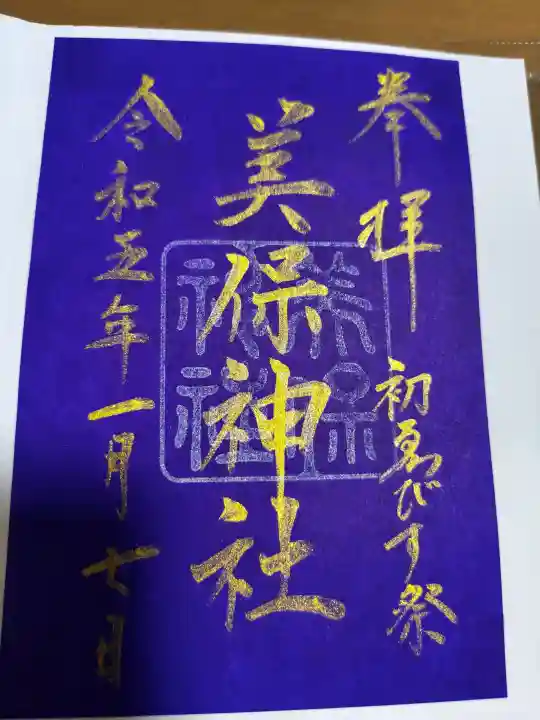 奉拝
初ゑびす祭
美保神社
美保神社
令和五年一月七日